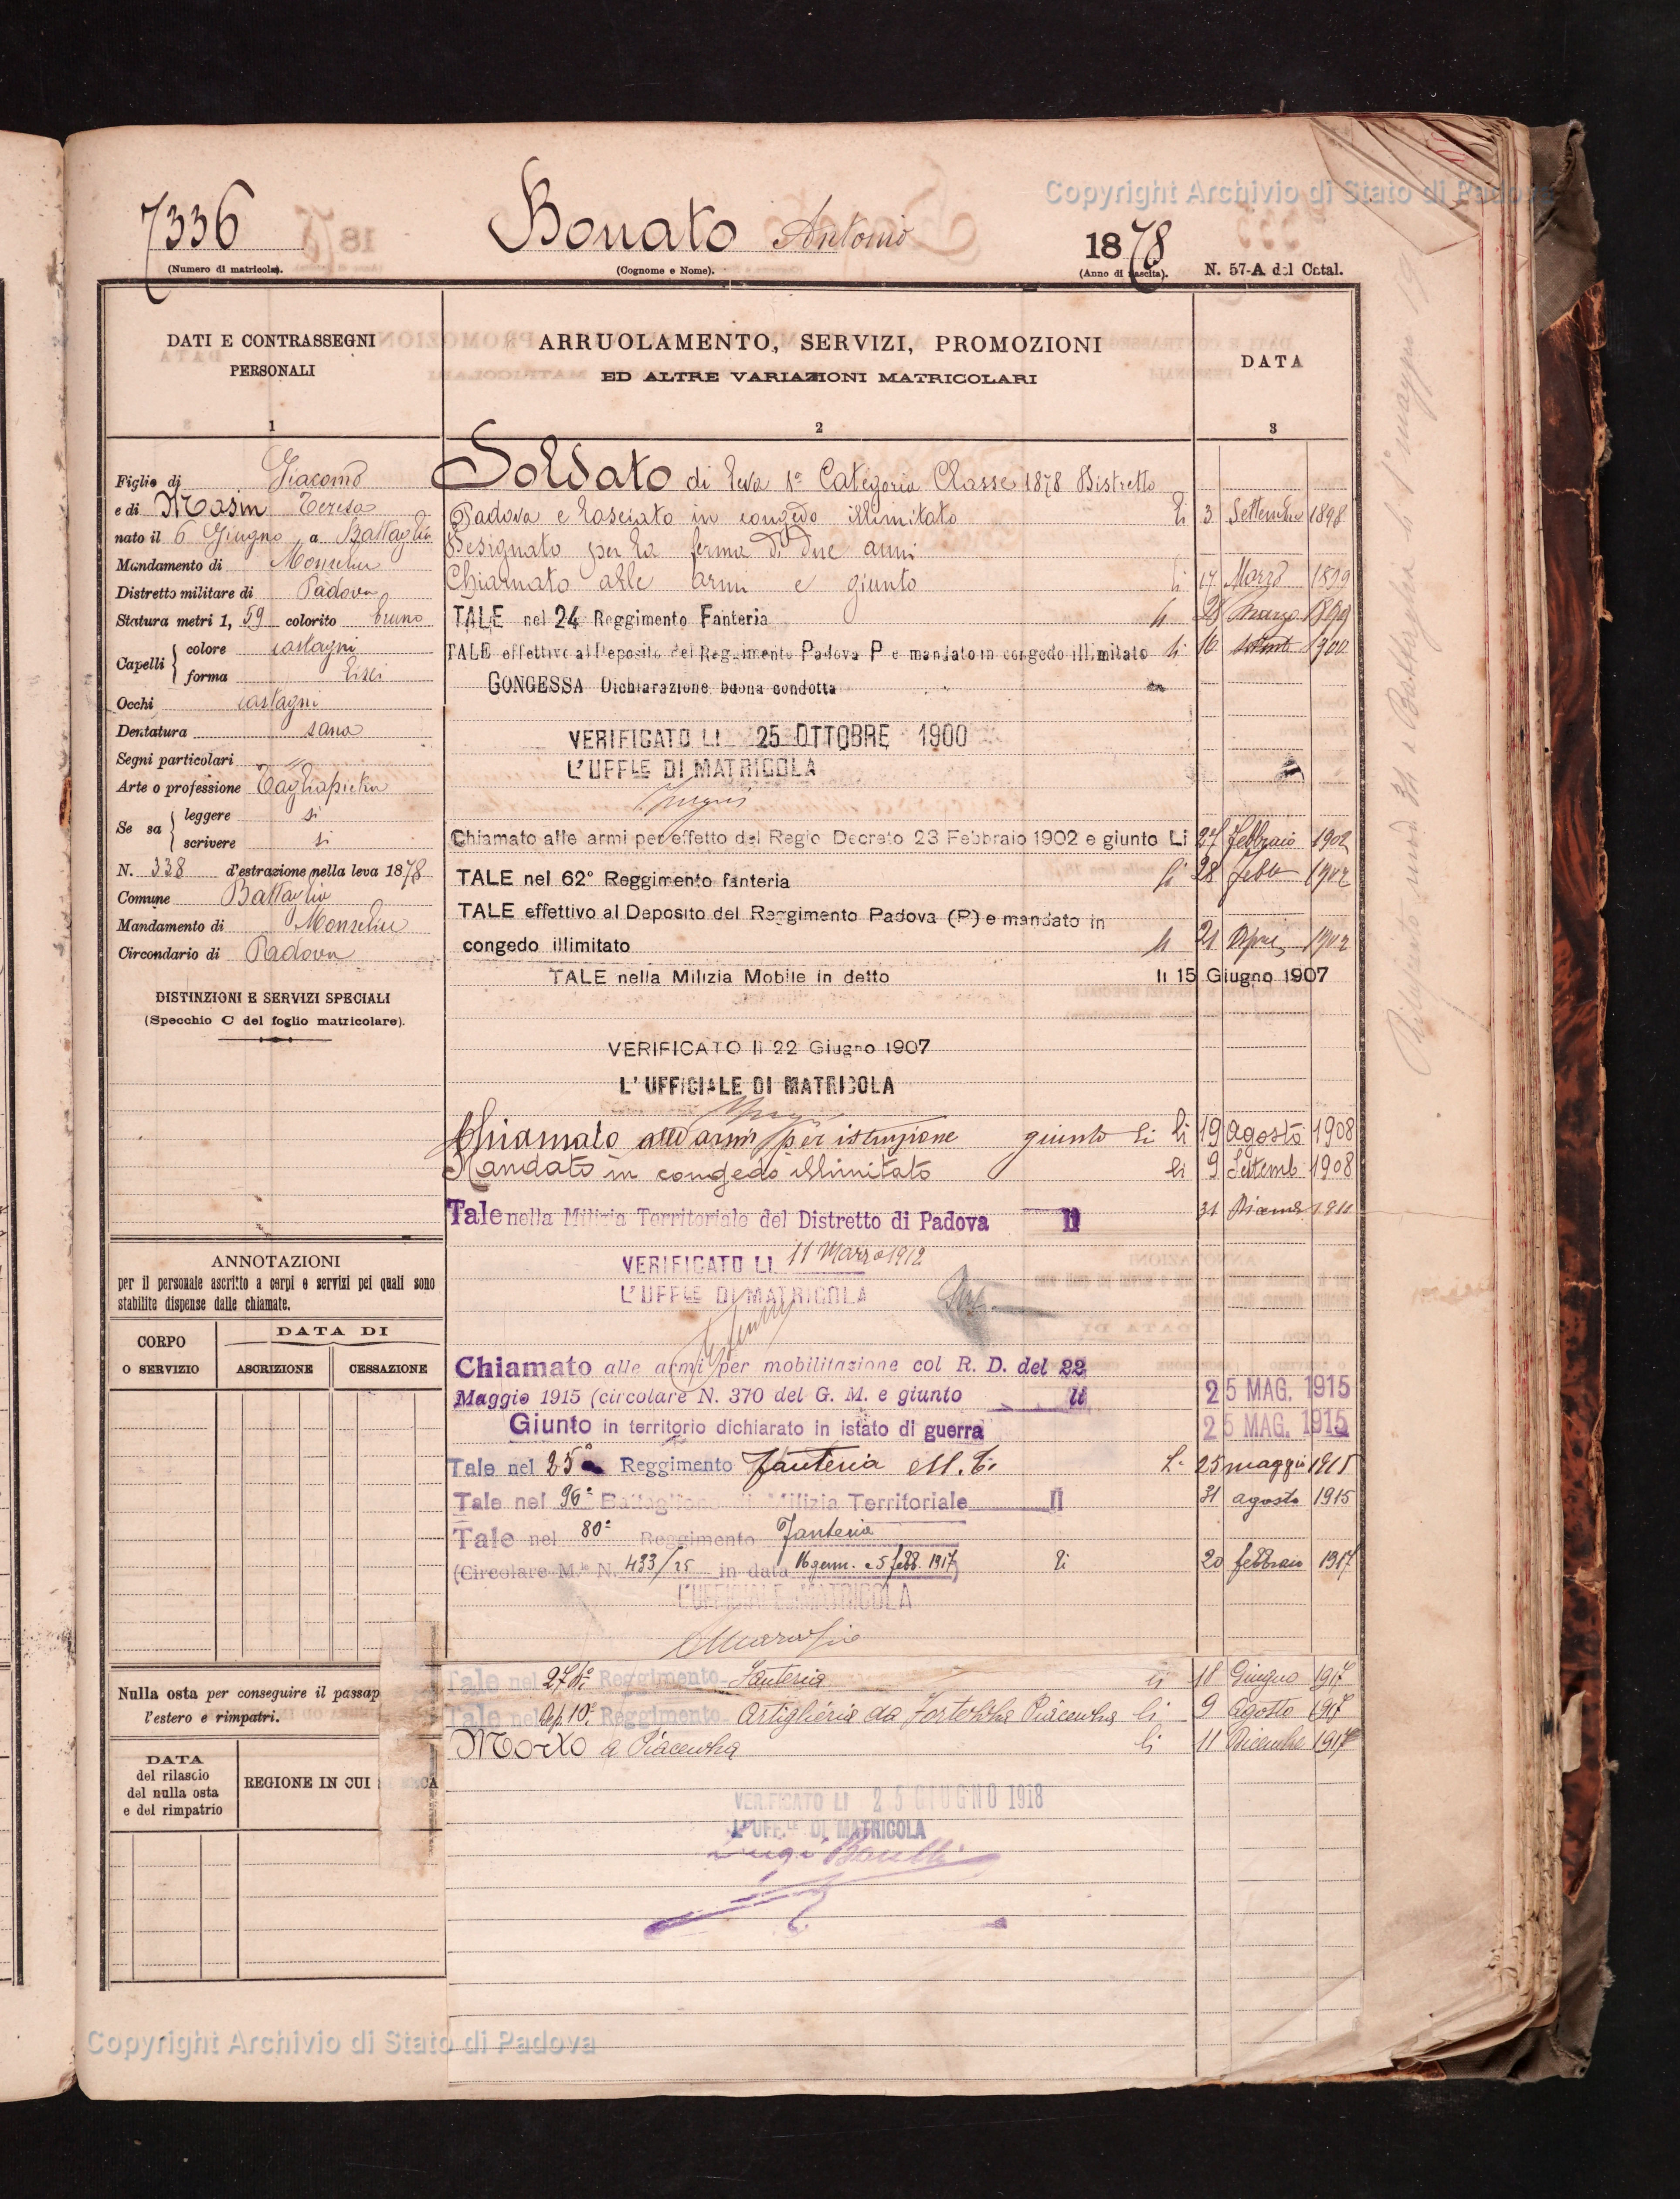 Copyright Archivio di Stato di Padova
7336
(Numero di matricola).
Bonato Antonio
(Cognome e Nome).
1878
(Anno di nascita).
N. 57-A del Catal.
DATI E CONTRASSEGNI
PERSONALI
1
ARRUOLAMENTO, SERVIZI, PROMOZIONI
ED ALTRE VARIAZIONI MATRICOLARI
2
DATA
3
Figlio di Giacomo
e di Masin Teresa
nato il 6 Giugno a Battaglia
Mandamento di Monselice
Distretto militare di Padova
Statura metri 1, 59 colorito bruno
Capelli colore castagni
forma lisci
Occhi castagni
Dentatura sana
Segni particolari
Arte o professione Tagliapietra
Se sa leggere si
scrivere si
N. 338 d'estrazione nella leva 1878
Comune Battaglia
Mandamento di Monselice
Circondario di Padova
DISTINZIONI E SERVIZI SPECIALI
(Specchio C del foglio matricolare).
ANNOTAZIONI
per il personale ascritto a corpi o servizi pei quali sono
stabilite dispense dalle chiamate.
CORPO
O SERVIZIO
DATA DI
ASCRIZIONE
CESSAZIONE
Nulla osta per conseguire il passap
l'estero e rimpatri.
DATA
del rilascio
del nulla osta
e del rimpatrio
REGIONE IN CUI
Soldato di leva 1a Categoria Classe 1878 Distretto
Padova e lasciato in congedo illimitato li 3 Settembre 1898
Designato per la ferma di due anni
Chiamato alle armi e giunto li 17 Marzo 1899
TALE nel 24 Reggimento Fanteria li 28 Marzo 1899
TALE effettivo al Deposito del Reggimento Padova P e mandato in congedo illimitato li 16 1900
CONCESSA Dichiarazione buona condotta
VERIFICATO LI 25 OTTOBRE 1900
L'UFFLE DI MATRICOLA
Chiamato alle armi per effetto del Regio Decreto 23 Febbraio 1902 e giunto Li 27 Febbraio 1902
TALE nel 62° Reggimento fanteria li 28 febb 1902
TALE effettivo al Deposito del Reggimento Padova (P) e mandato in
congedo illimitato li 21 Aprile 1902
TALE nella Milizia Mobile in detto li 15 Giugno 1907
VERIFICATO li 22 Giugno 1907
L'UFFICIALE DI MATRICOLA
Chiamato alle armi per istruzione giunto li li 19 Agosto 1908
Mandato in congedo illimitato li 9 Settemb 1908
Tale nella Milizia Territoriale del Distretto di Padova li 31 Dicemb 1911
VERIFICATO LI 11 Marzo 1912
L'UFFLE DI MATRICOLA
Chiamato alle armi per mobilitazione col R. D. del 22
Maggio 1915 (circolare N. 370 del G. M. e giunto li 25 MAG. 1915
Giunto in territorio dichiarato in istato di guerra 25 MAG. 1915
Tale nel 25° Reggimento Fanteria M. T. li 25 maggio 1915
Tale nel 96° Battaglione di Milizia Territoriale li 31 agosto 1915
Tale nel 80° Reggimento Fanteria
(Circolare M.le N. 433/25 in data 16 genn. e 5 febb. 1917) li 20 febbraio 1917
L'UFFICIALE MATRICOLA
Tale nel 276° Reggimento Fanteria li 18 Giugno 1917
Tale nel Dep. 10° Reggimento Artiglieria da Fortezza Piacenza li 9 Agosto 1917
Morto a Piacenza li 11 Dicembre 1917
VERIFICATO LI 25 GIUGNO 1918
L'UFF.LE DI MATRICOLA
Luigi
Copyright Archivio di Stato di Padova